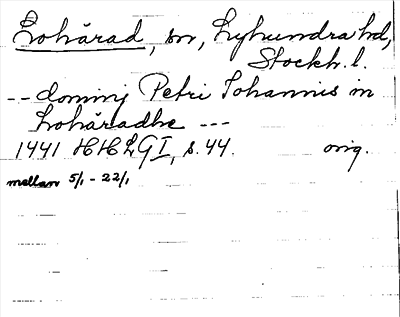 Lohärad, sn, Lyhundra hd,
Stockh. l.
-- dominj Petri Johannis in
Lohäradhe ---
1441 HHLG I, s. 44. orig.
mellan 5/1 - 22/1